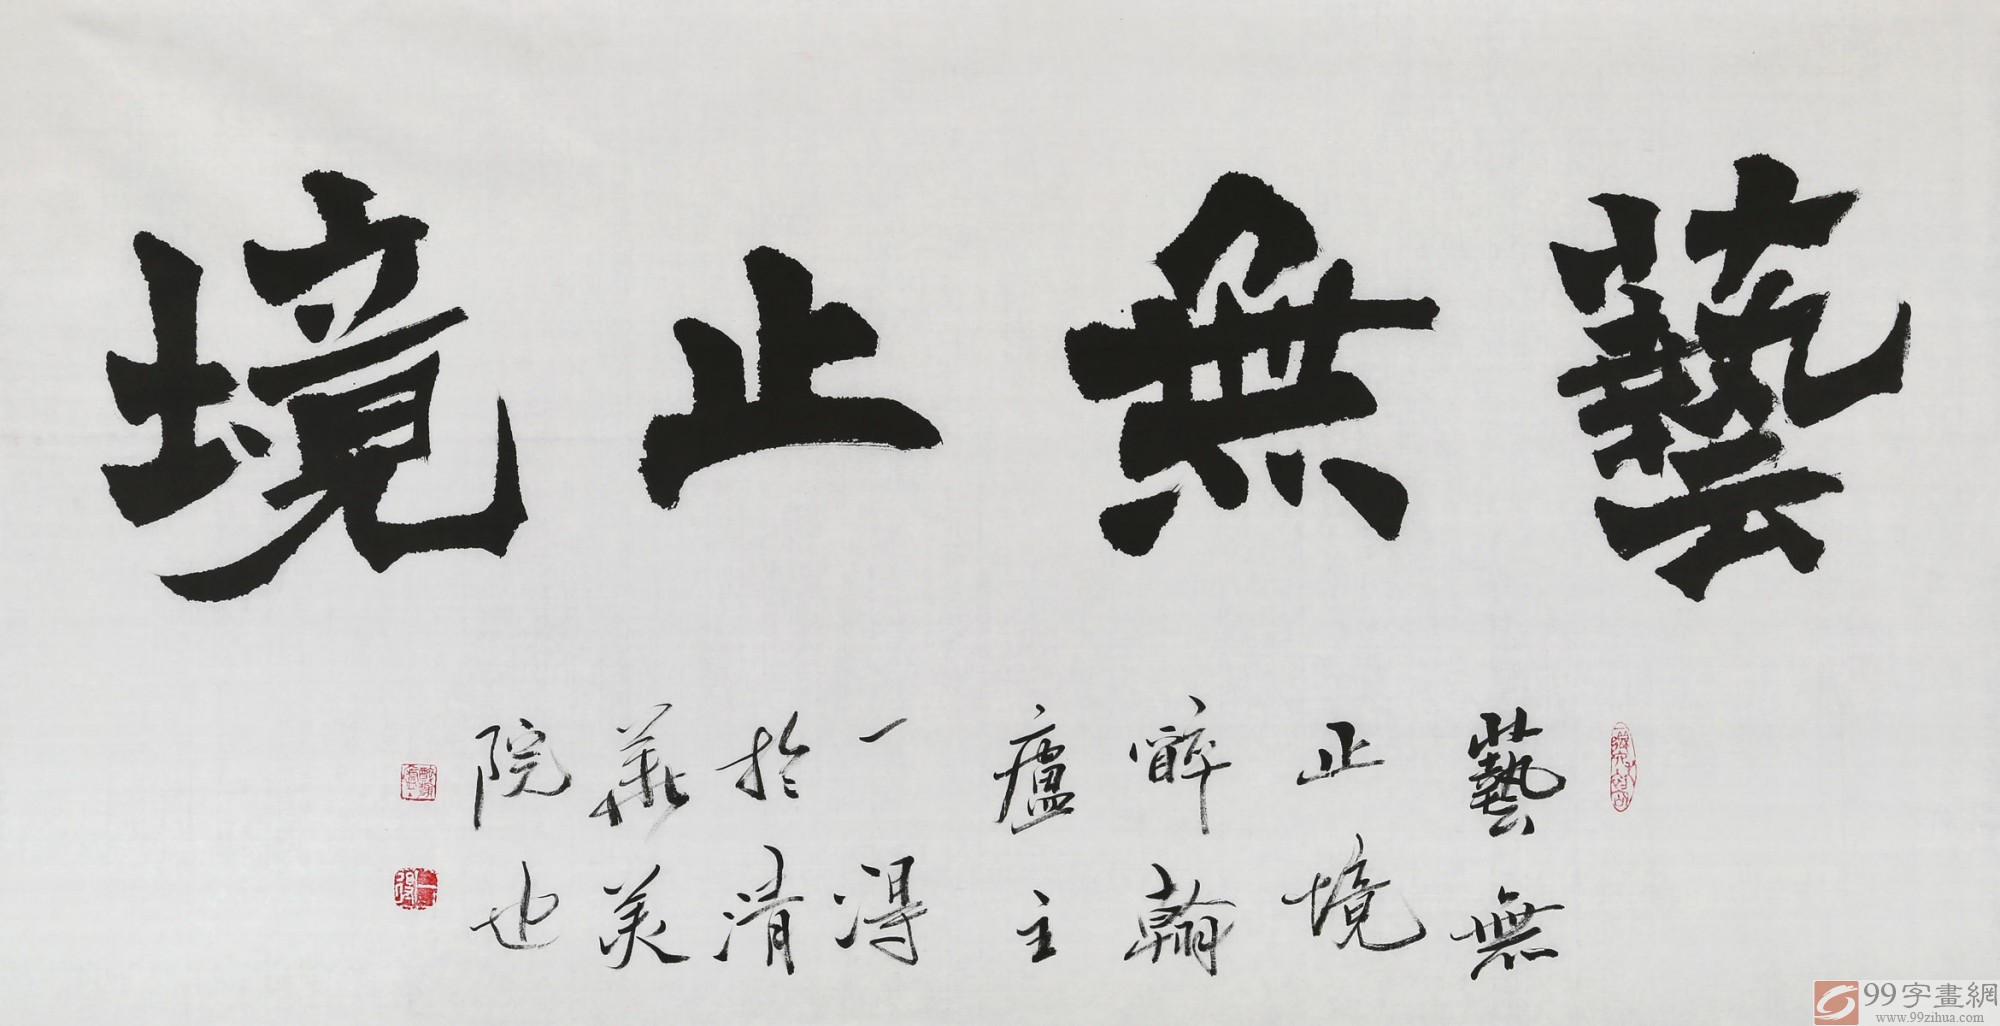 藝無止境
藝無
止境
醉翰
廬主
一得
於清
華美
院也
99字畫網
www.99zihua.com